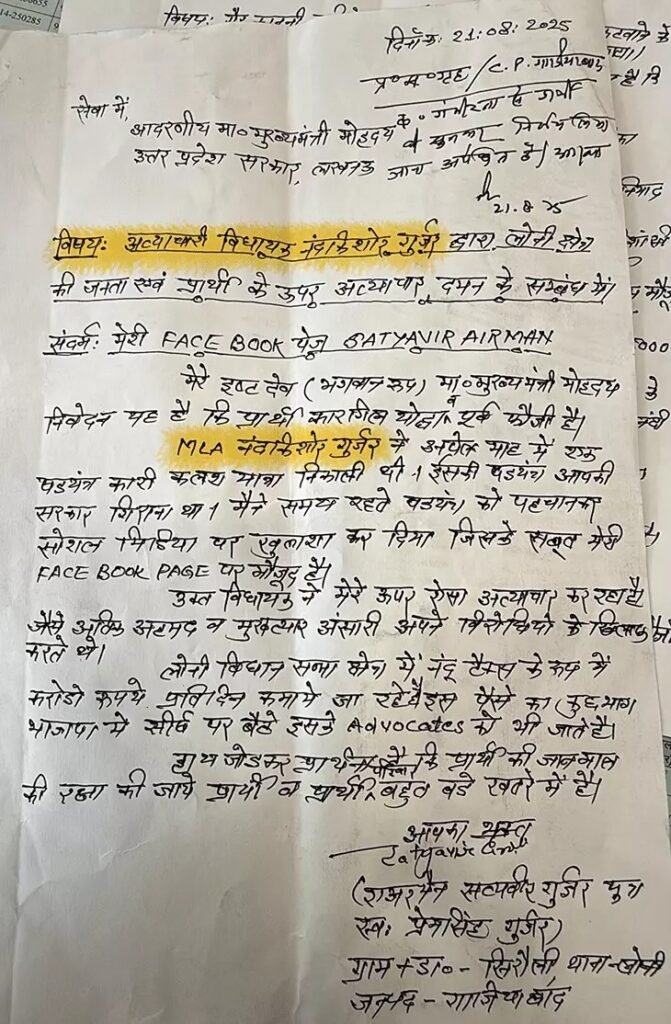 विषय:
14-250285
दिनाँक: 21:08:2025
प्र०स०गृह / C.P. गाजियाबाद
सेवा में,
आदरणीय मा० मुख्यमंत्री मोहदय
उत्तर प्रदेश सरकार, लखनऊ जांच अपेक्षित है।
21.8.25
विषय: अत्याचारी विधायक नंदकिशोर गुर्जर द्वारा लोनी क्षेत्र
की जनता एवं प्रार्थी के उपर अत्याचार, दमन के सम्बंध में।
संदर्भ: मेरी FACE BOOK पेज SATYAVIR AIRMAN
मेरे इष्ट देव (भगवान रूप) मा० मुख्यमंत्री मोहदय
निवेदन यह है कि प्रार्थी कारगिल योद्धा व पूर्व फौजी है।
MLA नंदकिशोर गुर्जर ने अप्रेल माह में एक
षडयंत्र कारी कलश यात्रा निकाली थी। इसका षडयंत्र आपकी
सरकार गिराना था। मैंने समय रहते षडयंत्र को पहचानकर
सोशल मिडिया पर खुलाशा कर दिया जिसके सबूत मेरी
FACE BOOK PAGE पर मौजूद है।
उक्त विधायक ने मेरे ऊपर ऐसा अत्याचार कर रहा है।
जैसे अतिक अहमद व मुखत्यार अंसारी अपने विरोधियो के खिलाफ
करते थे।
लोनी विधान सभा क्षेत्र में नंदू टैक्स के रूप में
करोडो रूपये प्रतिदिन कमाये जा रहे है इस पैसे का कुछ भाग
भाजपा मे शीर्ष पर बैठे इसके Advocates को भी जाते है।
हाथ जोडकर प्रार्थना है कि प्रार्थी की जानमाल
की रक्षा की जाये प्रार्थी व प्रार्थी परिवार बहुत बडे खतरे में है।
आपका भक्त
(एअरमैन सत्यवीर गुर्जर पुत्र
स्व: प्रेमसिंह गुर्जर)
ग्राम + डा० - सिरौली थाना-लोनी
जनपद - गाजियाबाद